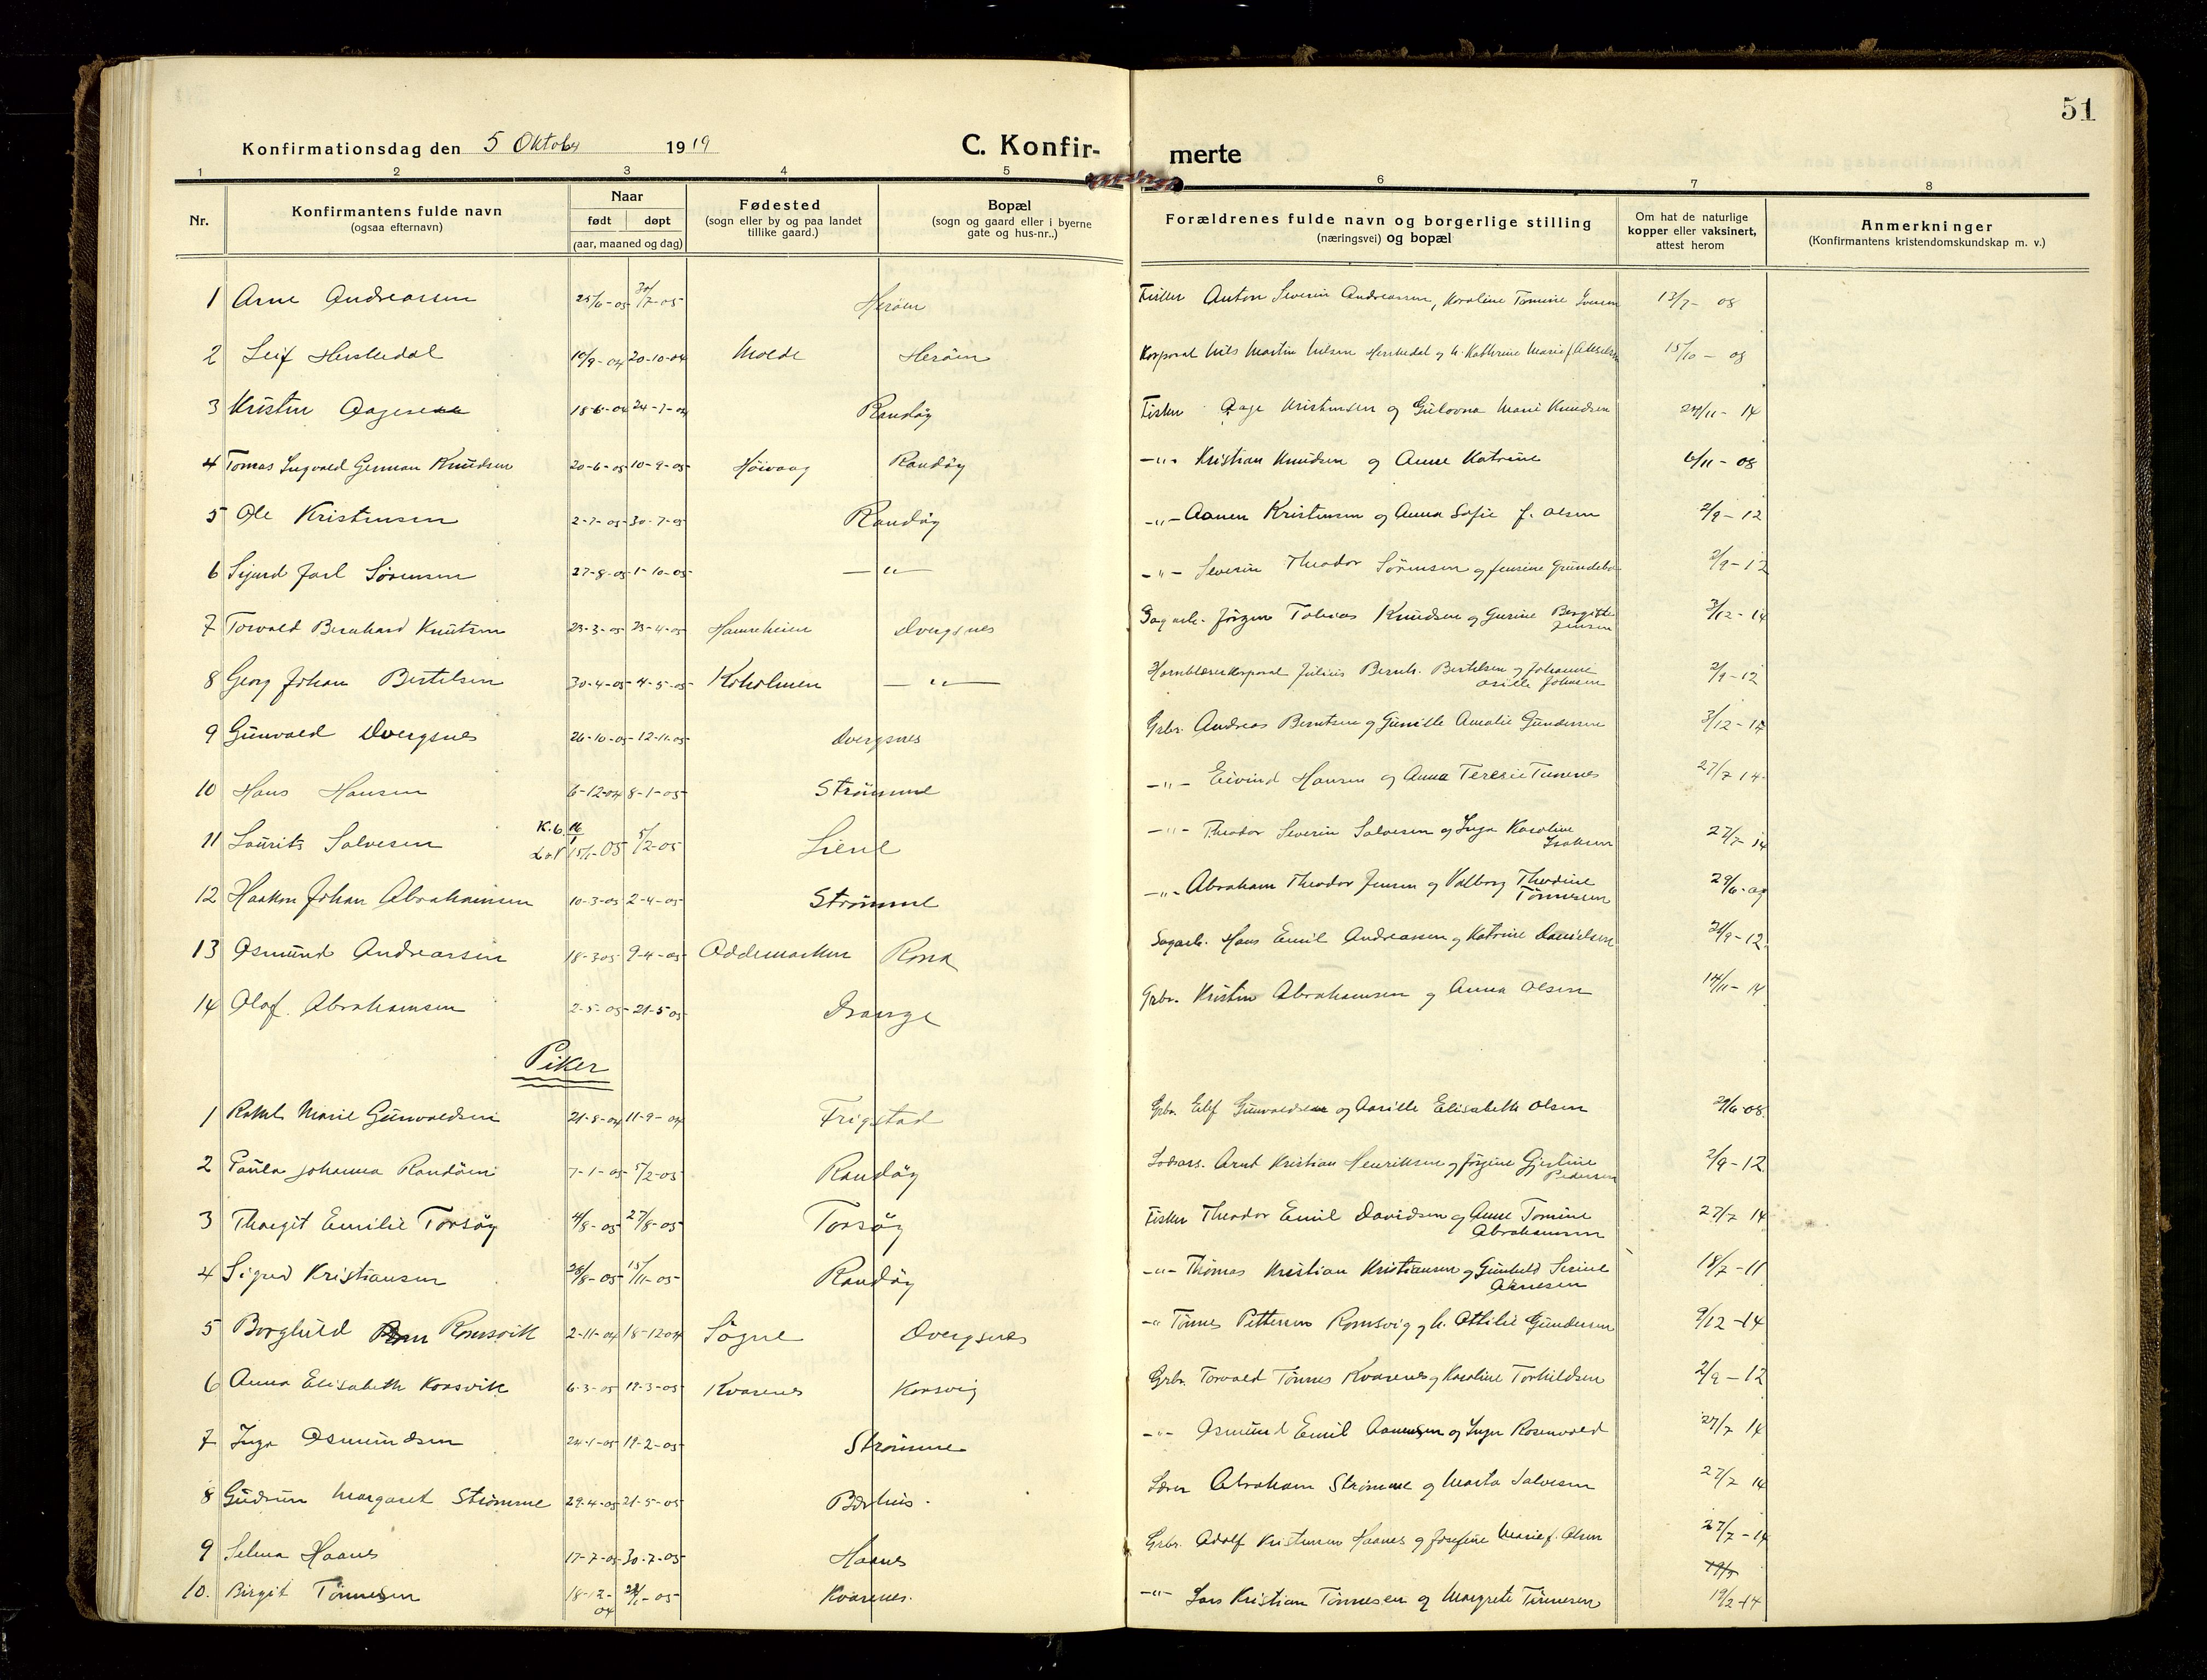 51
Konfirmationsdag den 5 Oktober 1919
C. Konfir- merte
1 2 3 4 5 6 7 8
Nr.
Konfirmantens fulde navn
(ogsaa efternavn)
Naar
født døpt
(aar, maaned og dag)
Fødested
(sogn eller by og paa landet
tillike gaard.)
Bopæl
(sogn og gaard eller i byerne
gate og hus-nr..)
Forældrenes fulde navn og borgerlige stilling
(næringsvei) og bopæl
Om hat de naturlige
kopper eller vaksinert,
attest herom
Anmerkninger
(Konfirmantens kristendomskundskap m. v.)
1 Arne Andreassen 25/6-05 30/7-05 Herøen Fisker Anton Severin Andreassen, Karoline Tomine Iversen 13/7- 08
2 Leif Herskedal 10/9-04 20-10-04 Molde Herøen Korporal Nils Martin Nilsen Herskedal og h. Kathrine Marie f. 15/10 - 08
3 Kristen Aagesen 18-6-04 24-7-04 Randøy Fisker Aage Kristensen og Gulovna Marie Knudsen 24/11- 14
4 Tomas Ingvald German Knudsen 20-6-05 10-9-05 Høivaag Randøy -"- Kristian Knudsen og Anne Katrine 6/11- 08
5 Ole Kristensen 2-7-05 30-7-05 Randøy -"- Aanen Kristensen og Anna Sofie f. Olsen 2/9-12
6 Sigurd Jarl Sørensen 27-8-05 1-10-05 -"- -"- Severin Theodor Sørensen og Jensine 2/9-12
7 Torvald Bernhard Knutsen 23-3-05 23-4-05 Hamreheien Dvergsnes Sagarb. Jørgen Tobias Knudsen og Gurine Bergitte
Jensen 3/12-14
8 Georg Johan Bertelsen 30-4-05 4-5-05 Koholmen -"- Hornblæserkorporal Julius Bernh. Bertelsen og Johanne
Asille Johnsen 2/9-12
9 Gunvald Dvergsnes 26-10-05 12-11-05 Dvergsnes Grbr. Andreas Berntsen og Gunille Amalie Gundersen 3/12-14
10 Hans Hansen 6-12-04 8-1-05 Strømme -"- Eivind Hansen og Anna Teresie Tønnes 27/7 14
11 Laurits Salvesen K.b. 16/1 15/1-05 5/2-05 Liene -"- Theodor Severin Salvesen og Inga Karoline
Isaksen 27/7-14
12 Haakon Johan Abrahamsen 10-3-05 2-4-05 Strømme -"- Abraham Theodor Jensen og Valborg Thodine
Tønnessen 29/6-09
13 Osmund Andreassen 18-3-05 9-4-05 Oddemarken Rona Sagarb. Hans Emil Andreassen og Katrine Danielsen 21/9-12
14 Olaf Abrahamsen 2-5-05 21-5-05 Drange Grbr. Kristen Abrahamsen og Anna Olsen 14/11-14
Piker
1 Rakel Marie Gunvaldsen 21-8-04 11-9-04 Frigstad Grbr. Eilif Gunvaldsen og Aasille Elisabeth Olsen 29/6-08
2 Paula Johanna Randøen 7-1-05 5/2-05 Randøy Lodsass. Arnt Kristian Henriksen og Jørgine Gjestine
Pedersen 2/9-12
3 Thorgit Emilie Torsøy 4/8-05 27/8-05 Torsøy Fisker Theodor Emil Davidsen og Anne Tomine
Abrahamsen 27/7 14
4 Sigrid Kristiansen 28/8-05 15/11-05 Randøy -"- Thomas Kristian Kristiansen og Gunhild Serine
Arnesen 18/7-11
5 Borghild Romsvik 2-11-04 18-12-04 Søgne Dvergsnes -"- Tønnes Pettersen Romsvig og h. Ottilie Gundersen 9/12-14
6 Anna Elisabeth Korsvik 6-3-05 19-3-05 Kvarenes Korsvig Grbr. Torvald Tønnes Kvarenes og Karoline Torkildsen 2/9-12
7 Inga Osmundsen 24-1-05 19-2-05 Strømme -"- Osmund Emil Aanensen og Inga Rosenvold 27/7 14
8 Gudrun Margaret Strømme 29-4-05 21-5-05 Bedehus. Lærer Abraham Strømme og Marta Salvesen 27/7 14
9 Selma Haanes 17-7-05 30-7-05 Haanes Grbr. Adolf Kristensen Haanes og Josefine Marie f. Olsen 27/7-14
10. Birgit Tønnesen 18-12-04 22/1-05 Kvarenes. -"- Lars Kristian Tønnesen og Margrete Tønnesen 19/2-14